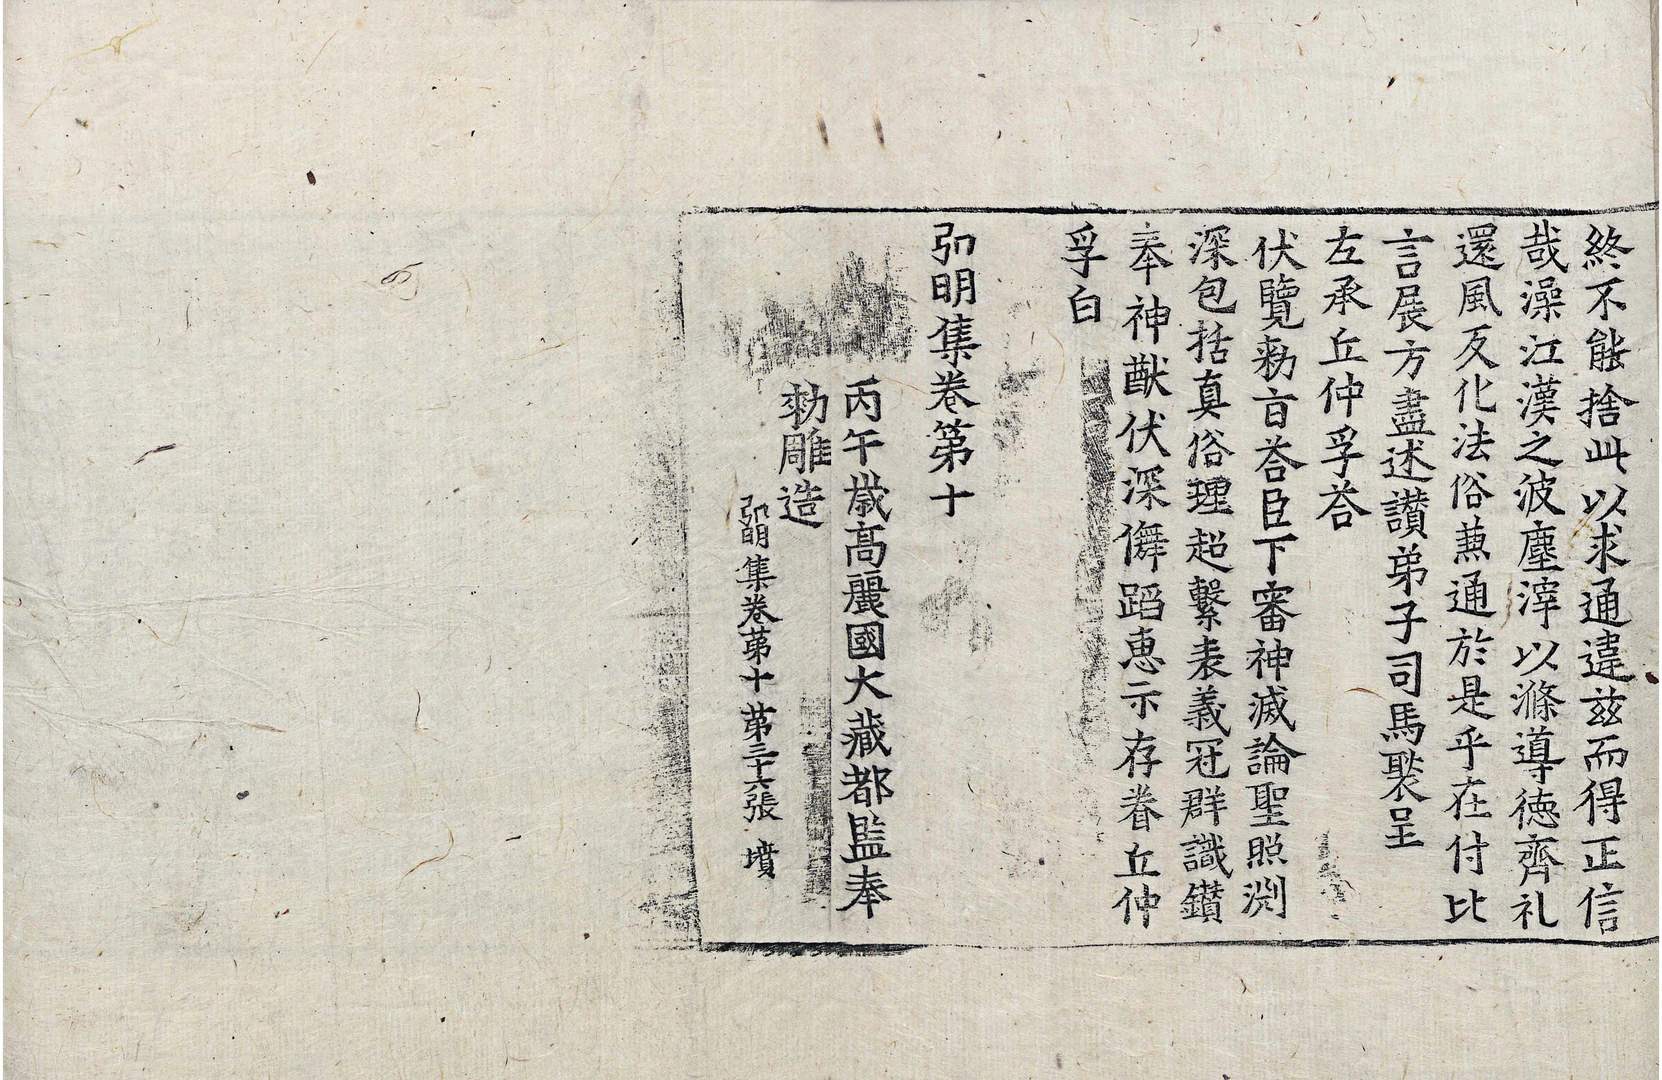 終不能捨此以求通違兹而得正信
哉澡江漢之波塵滓以滌導德齊礼
還風反化法俗蕪通於是乎在付比
言展方盡述讃弟子司馬褧呈
左承丘仲孚荅
伏覽勑旨荅臣下審神滅論聖照渊
深包括真俗理超繫表義冠群識鑚
奉神猷伏深儛蹈惠示存眷丘仲
孚白
弘明集卷第十
丙午歳髙麗國大藏都監奉
勑雕造
弘明集卷第十 第三十六張 墳